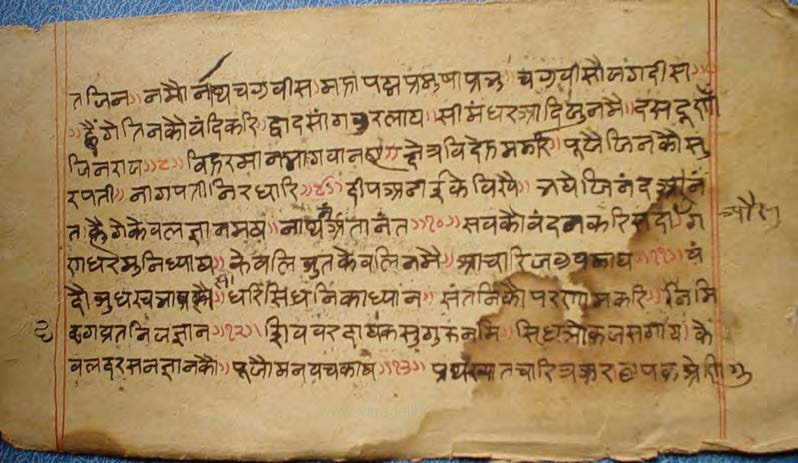 तजिन॥ नमौ नाथ चउवीस॥ महा पद्म प्रमुषा प्रभु॥ चउवीसौ जगदीस॥
॥ ह्वैगे तिनकौ वंदिकरि॥ द्वादसांग उरलाय॥ सीमंधर आदिकु नमै॥ दस दूणौ
जिनराज॥८॥ विहरमान भगवान ए॥ क्षेत्र विदेह मझारि॥ पूजै जिनकौ सु
रपती॥ नागपती निरधारि॥९॥ दीप अढाई के विषै॥ भये जिनंद अनं
त॥ ह्वैगे केवल ज्ञानमय॥ नाथ अनंतानंत॥१०॥ सवकौ वंदन करि सदा॥ ग
णधर मुनि ध्याय॥ केवलि श्रुत केवलि नमै॥ आचारिज उवझाय॥११॥ वं
दौ सुध स्वभाव कौ॥ धरि सिधनि का ध्यान॥ संतनि कौ परणाम करि॥ नमि
द्रगव्रत निज ज्ञान॥१२॥ शिव वरदायक सुगुरु नमि॥ सिध लोक जस गाय॥ के
वल दरसन ज्ञान कौ॥ पूजौ मन वच काय॥१३॥ चारित्र
और